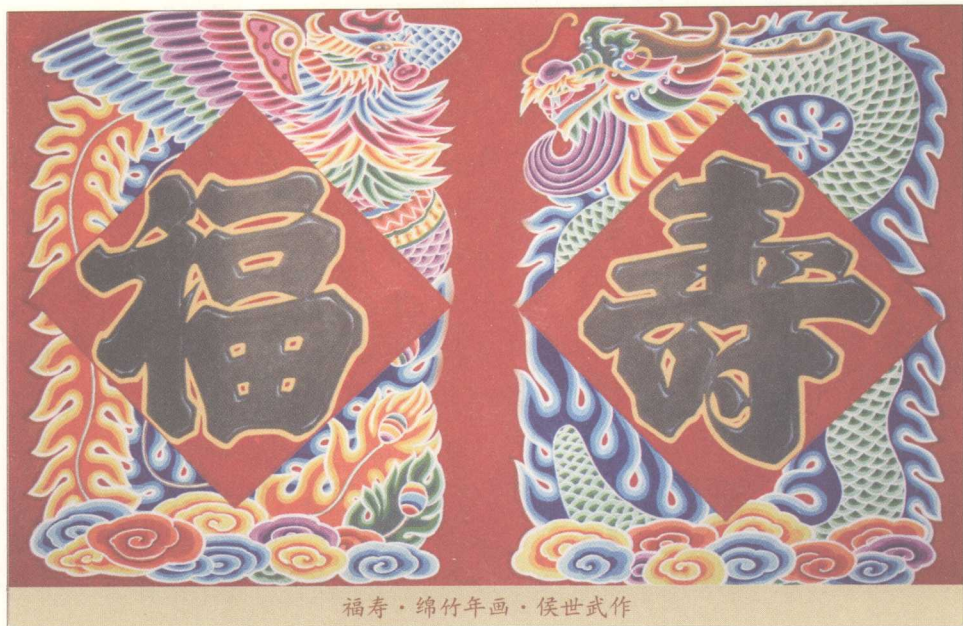 福 寿
福寿·绵竹年画·侯世武作